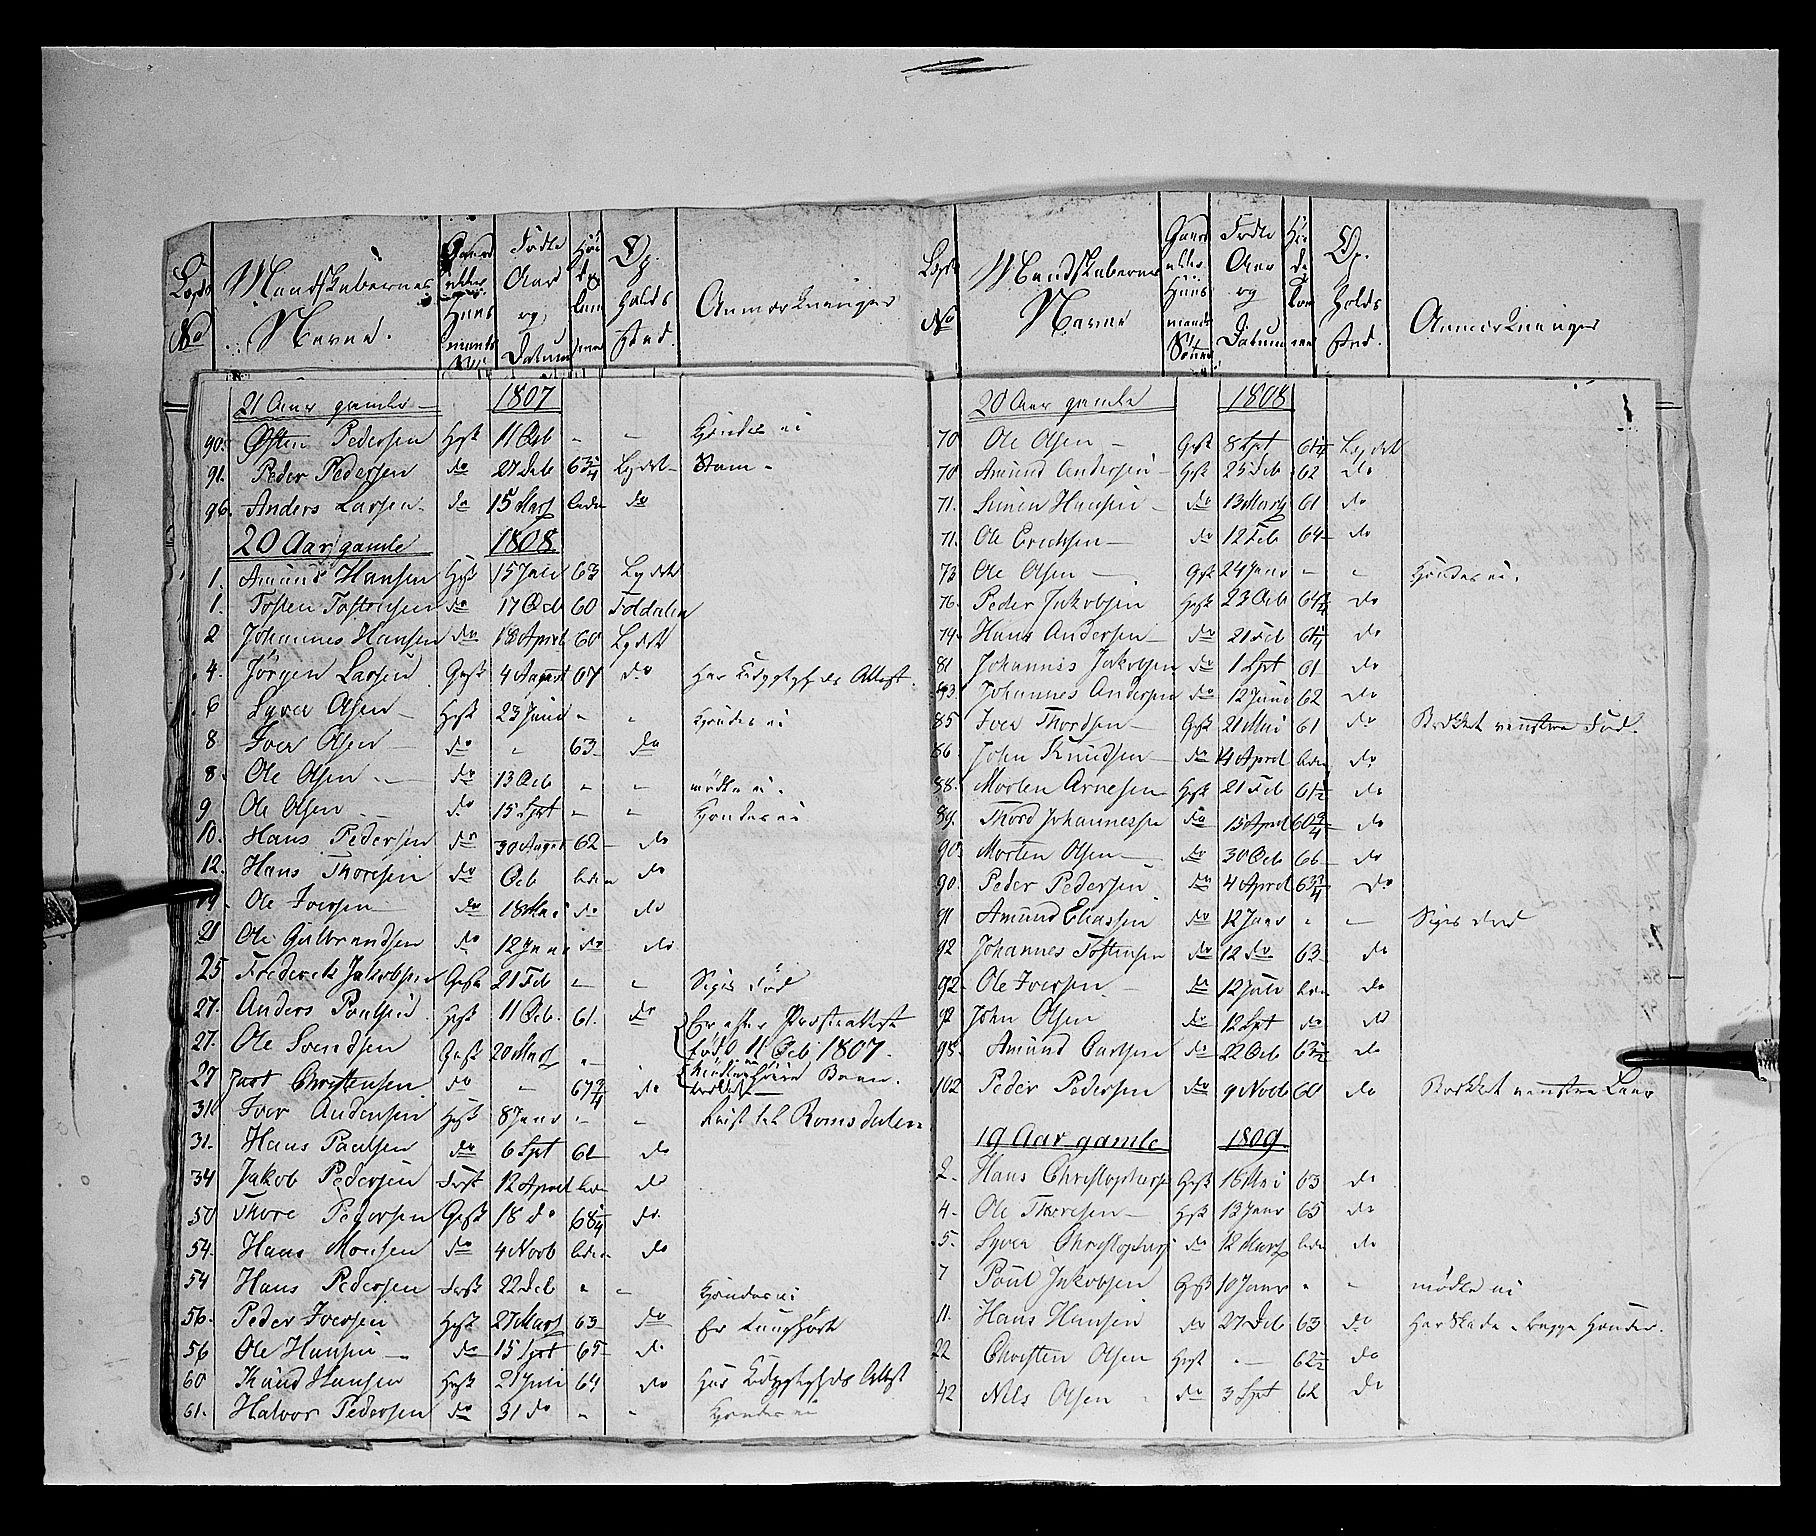 Lægds No
Mandskabernes Navne.
Gaard eller Huus mands Søn
Fødte Aar og Datum
Høide
Op holds sted.
Anmærkninger
21 Aar gamle 1807
90. Østen Pedersen Hgsk 11 Octb - - Kjendes ei
91. Peder Pedersen do 27 Deb 63 3/4 Lægdet
96. Anders Larsen do 15 Marj do
20 Aar gamle 1808
1. Amund Hansen Hgsk 15 Juli 63 Lægdet
1. Tosten Tostensen do 17 Octb 60 Foldalen
2 Johannes Hansen do 18 April 60 Lægdet
4. Jörgen Larsen Ggsk 4 August 67 do Attest.
6 Syver Olsen Hgsk 23 Juni - - Kjendes ei
8 Iver Olsen do - 63 do
8. Ole Olsen do 13 Octb - - mødte ei.
9 Ole Olsen do 15 Spt - - Kjendes ei
10. Hans Pedersen do 30 August 62 do
12. Hans Thoresen do Octb do
19. Ole Iversen do 18 Mai do do
21 Ole Gulbrandsen do 12 Janr do do
25 Frederik Jakobsen Ggsk 21 Feb - - Siges død
27. Anders Poulsen Hgsk 11 Octb. 61. do Er efter Præsteattest
27. Ole Svendsen Ggsk 20 Marj - fød 11 Octb 1807.
27 Just Christensen do - 67 3/4 do
31. Iver Andersen Hgsk 8 Janr - - Reist til Romsdalen
31. Hans Paulsen do 6 Spt 62 do
34 Jakob Pedersen 12 April do
50 Thore Pedersen Ggsk 18 do 68 1/4 do.
54. Hans Monsen do 4 Novb do
54 Hans Pedersen 22 Deb - - Kjendes ei
56. Peder Iversen Hgsk 27 Marj 63 do Er
56 Ole Hansen do 15 Spt 65 do
60 Knud Hansen Hgsk 21 Juli 64 do Attest
61. Halvor Pedersen do 31 do - - Kjendes ei
Lægds No
Mandskabernes Navne
Gaard eller Huus mands Sønner
Fødte Aar og Datum
Op. holds sted.
Anmærkninger
20 Aar gamle 1808
70 Ole Olsen Ggsk 8 Spt 61 1/4 Lægdet
70 Amund Andersen Hgsk 25 Deb 62 do
71. Simen Hansen do 13 Marj 61 do
71. Ole Ericksen do 12 Feb 64 do
73 Ole Olsen Ggsk 24 Janr - - Kjendes ei.
76. Peder Jakobsen Hgsk 23 Octb 64 3/4 do
79. Hans Andersen do 21 Feb 61 1/4 do
81 Johannes Jakobsen do 1 Spt 61 do
Johannes Andersen do 12 Juni 62 do
85 Iver Thordsen Ggsk 21 Mai 61 do Brækket venstre Fod.
86 John Knudsen do 4 April do
88. Morten Arnesen Hgsk 21 Feb 61 1/2 do
89. Thord Johannessen do 15 April 60 3/4 do
90. Morten Olsen do 30 Octb 66 do
90. Peder Pedersen do 4 April 63 3/4 do
91 Amund Eliassen do 12 Janr - - Siges død
92 Johannes Tostensen do 12 do 63 do
92. Ole Iversen do 12 Juli do
92 John Olsen do 12 Spt do do
95. Amund Carlsen do 22 Octb 63 1/2 do
102 Peder Pedersen do 9 Novb 60 do Brækket venstre Laar
19 Aar gamle 1809
2. Hans Christophers Hgsk 16 Mai 63 do
4. Ole Thoresen Hgsk 13 Janr 65 do
5. Syver Christophers do 12 Marj do
7 Poul Jakobsen Ggsk 10 Janr - - mødte ei
11. Hans Hansen do 27 Deb 63 do Har Skade i begge Hænder.
22 Christen Olsen Hgsk - 62 1/2 do
42 Nils Olsen do 3 Spt 62 do